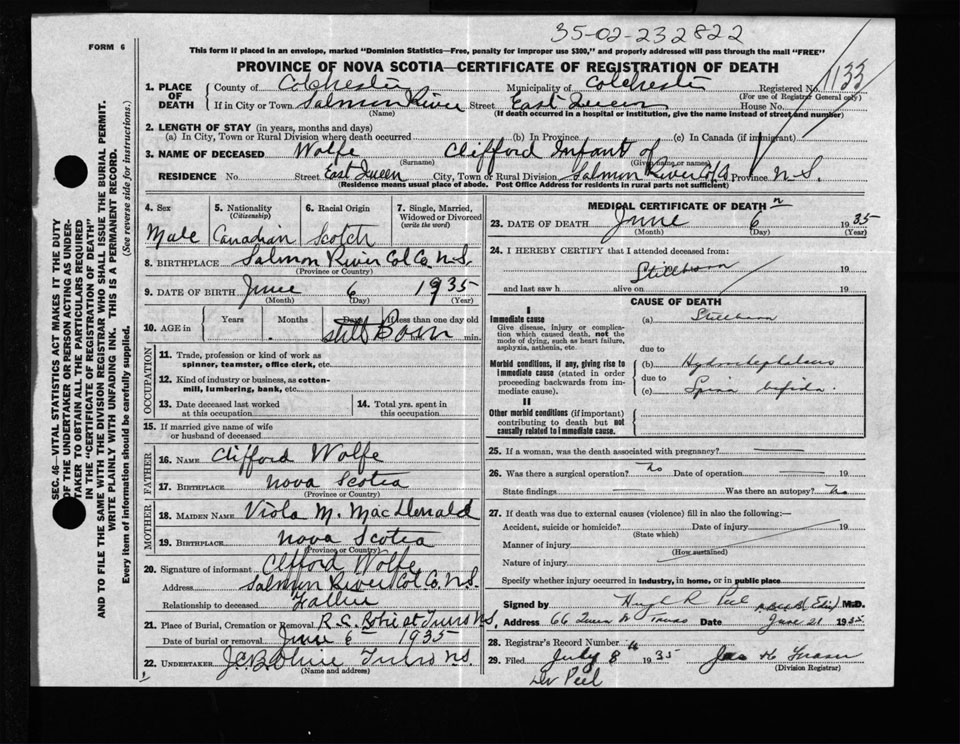 35-02-232822
FORM 6
This form if placed in an envelope, marked "Dominion Statistics—Free, penalty for improper use $300," and properly addressed will pass through the mail "FREE"
PROVINCE OF NOVA SCOTIA—CERTIFICATE OF REGISTRATION OF DEATH
1133
SEC. 46—VITAL STATISTICS ACT MAKES IT THE DUTY
OF THE UNDERTAKER OR PERSON ACTING AS UNDER-
TAKER TO OBTAIN ALL THE PARTICULARS REQUIRED
IN THE "CERTIFICATE OF REGISTRATION OF DEATH"
AND TO FILE THE SAME WITH THE DIVISION REGISTRAR WHO SHALL ISSUE THE BURIAL PERMIT.
WRITE PLAINLY WITH UNFADING INK. THIS IS A PERMANENT RECORD.
Every item of information should be carefully supplied. (See reverse side for instructions.)
1. PLACE OF DEATH County of Colchester Municipality of Colchester Registered No.
(For use of Registrar General only)
If in City or Town Salmon River Street East Queen House No.
(Name) (If death occurred in a hospital or institution, give the name instead of street and number)
2. LENGTH OF STAY (in years, months and days)
(a) In City, Town or Rural Division where death occurred (b) In Province (c) In Canada (if immigrant)
3. NAME OF DECEASED Wolfe Clifford Infant of
(Surname) (Given name or names)
RESIDENCE No. Street East Queen City, Town or Rural Division Salmon River Col Co Province N.S.
(Residence means usual place of abode. Post Office Address for residents in rural parts not sufficient)
4. Sex 5. Nationality (Citizenship) 6. Racial Origin 7. Single, Married, Widowed or Divorced (write the word)
Male Canadian Scotch
8. BIRTHPLACE Salmon River Col Co. N.S.
(Province or Country)
9. DATE OF BIRTH June 6 1935
(Month) (Day) (Year)
10. AGE in Years Months Days If less than one day old
still Born hrs. min.
OCCUPATION
11. Trade, profession or kind of work as spinner, teamster, office clerk, etc.
12. Kind of industry or business, as cotton-mill, lumbering, bank, etc.
13. Date deceased last worked at this occupation
14. Total yrs. spent in this occupation
15. If married give name of wife or husband of deceased
FATHER
16. NAME Clifford Wolfe
17. BIRTHPLACE Nova Scotia
(Province or Country)
MOTHER
18. MAIDEN NAME Viola M. MacDonald
19. BIRTHPLACE Nova Scotia
(Province or Country)
20. Signature of informant Clifford Wolfe
Address Salmon River Col Co. N.S.
Relationship to deceased Father
21. Place of Burial, Cremation or Removal R.C. at Truro N.S.
Date of burial or removal June 6 1935
22. UNDERTAKER Truro N.S.
(Name and address)
MEDICAL CERTIFICATE OF DEATH
23. DATE OF DEATH June 6 1935
(Month) (Day) (Year)
24. I HEREBY CERTIFY that I attended deceased from:
Stillborn 19
and last saw h alive on 19
CAUSE OF DEATH
I
Immediate cause (a) Stillborn
Give disease, injury or complication which caused death, not the mode of dying, such as heart failure, asphyxia, asthenia, etc.
due to
Morbid conditions, if any, giving rise to immediate cause (stated in order proceeding backwards from immediate cause).
(b) Hydrocephalous
due to
(c) Spina bifida
II
Other morbid conditions (if important) contributing to death but not causally related to immediate cause.
25. If a woman, was the death associated with pregnancy?
26. Was there a surgical operation? No Date of operation 19
State findings Was there an autopsy? No
27. If death was due to external causes (violence) fill in also the following:—
Accident, suicide or homicide? Date of injury 19
(State which)
Manner of injury
(How sustained)
Nature of injury
Specify whether injury occurred in industry, in home, or in public place
Signed by Hugh R Peel M.D.
Address 66 Queen St Truro Date June 21 1935
28. Registrar's Record Number
29. Filed July 8 1935 Jas H Fraser
(Division Registrar)
Dr Peel